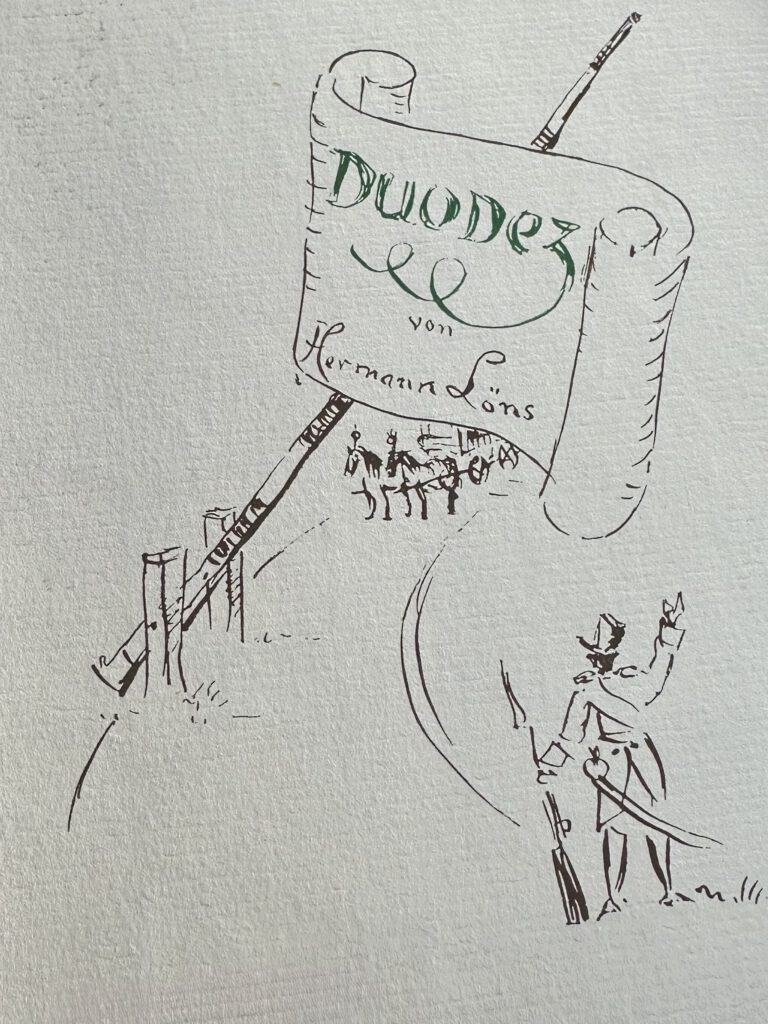 Duodez
von
Hermann Löns